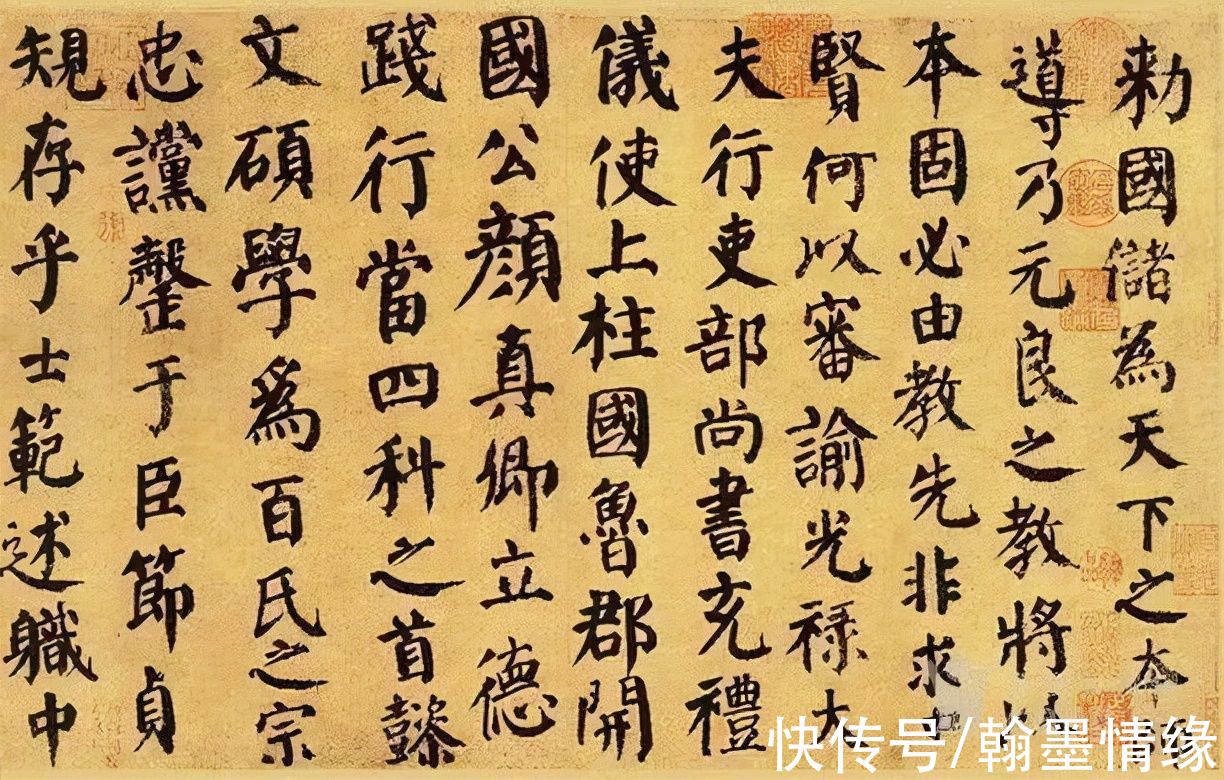 勑國儲為天下之本
導乃元良之教將
本固必由教先非求
賢何以審諭光祿大
夫行吏部尚書充禮
儀使上柱國魯郡開
國公顏真卿立德
踐行當四科之首懿
文碩學爲百氏之宗
忠讜罄于臣節貞
規存乎士範述職中
快传号/翰墨情缘